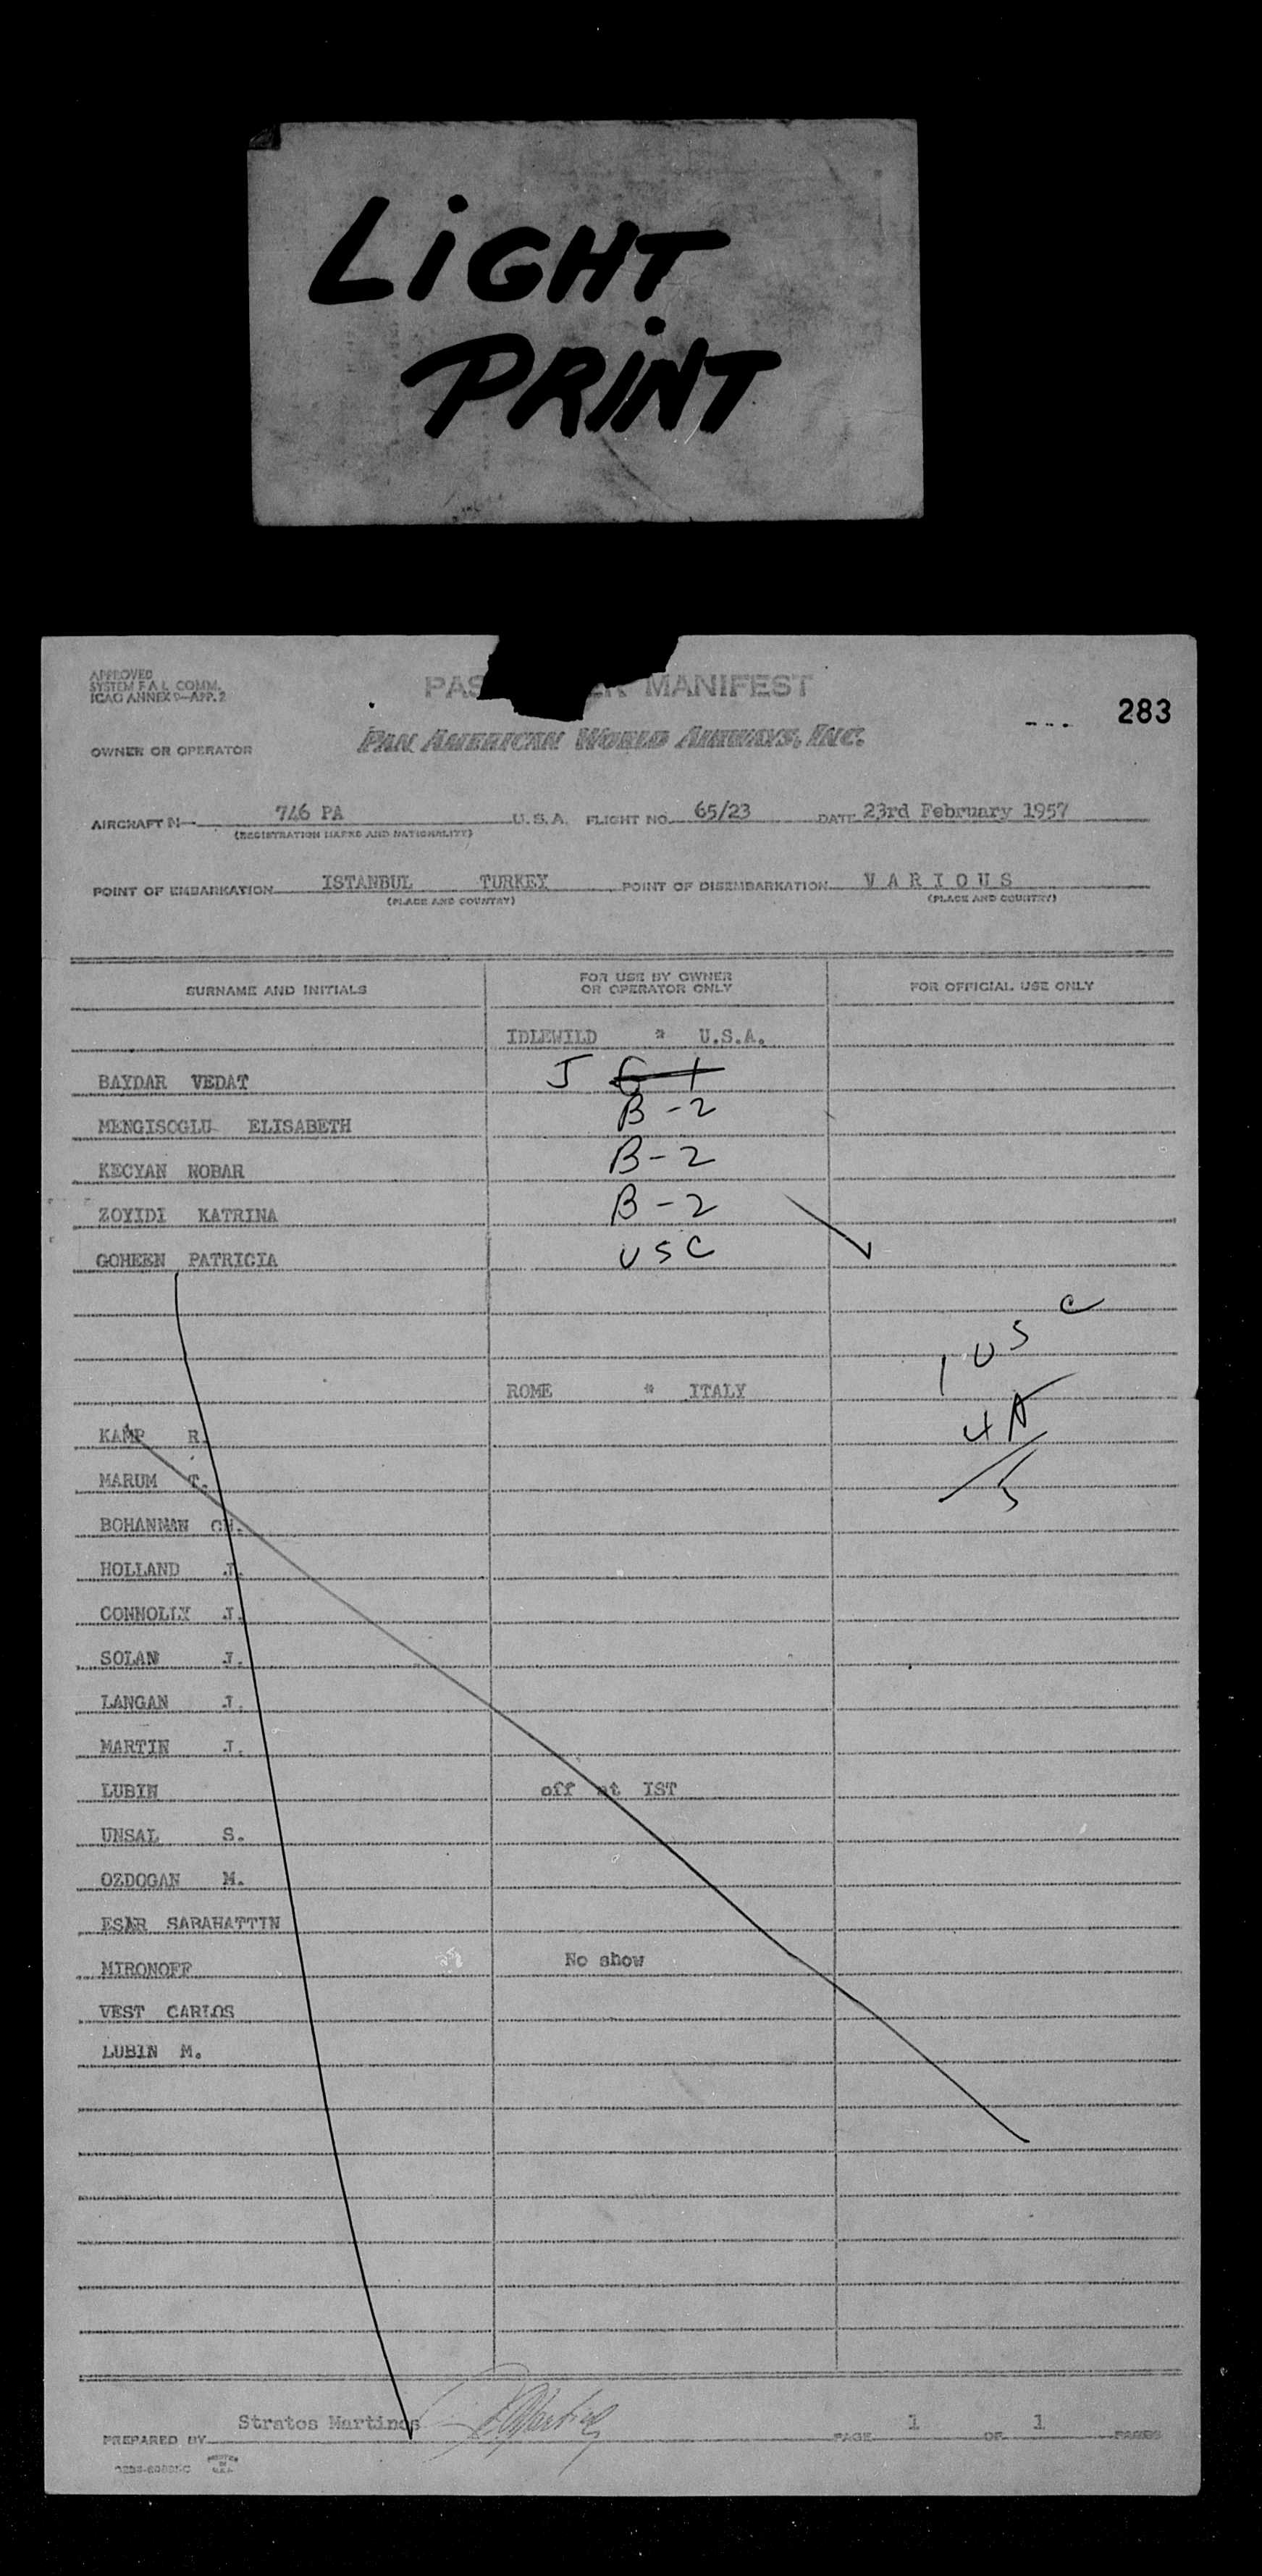 LiGHT
PRiNT
APPROVED
SYSTEM F.A.L. COMM.
ICAO ANNEX 9-APP. 2
PAS ER MANIFEST
283
OWNER OR OPERATOR PAN AMERICAN WORLD AIRWAYS, INC.
AIRCRAFT N- 746 PA U.S.A. FLIGHT NO. 65/23 DATE 23rd February 1957
(REGISTRATION MARKS AND NATIONALITY)
POINT OF EMBARKATION ISTANBUL TURKEY POINT OF DISEMBARKATION V A R I O U S
(PLACE AND COUNTRY) (PLACE AND COUNTRY)
SURNAME AND INITIALS FOR USE BY OWNER OR OPERATOR ONLY FOR OFFICIAL USE ONLY
IDLEWILD * U.S.A.
BAYDAR VEDAT J G-1
MENGISOGLU ELISABETH B-2
KECYAN NOBAR B-2
ZOYIDI KATRINA B-2
GOHEEN PATRICIA USC
1 USC
ROME * ITALY
4 A
KAMP R.
MARUM T. 5
BOHANMAN CH.
HOLLAND J.
CONNOLLY J.
SOLAN J.
LANGAN J.
MARTIN J.
LUBIN off at IST
UNSAL S.
OZDOGAN M.
ESAR SARAHATTIN
MIRONOFF No show
VEST CARLOS
LUBIN M.
PREPARED BY Stratos Martinos PAGE 1 OF 1 PAGES
PRINTED
IN
U.S.A.